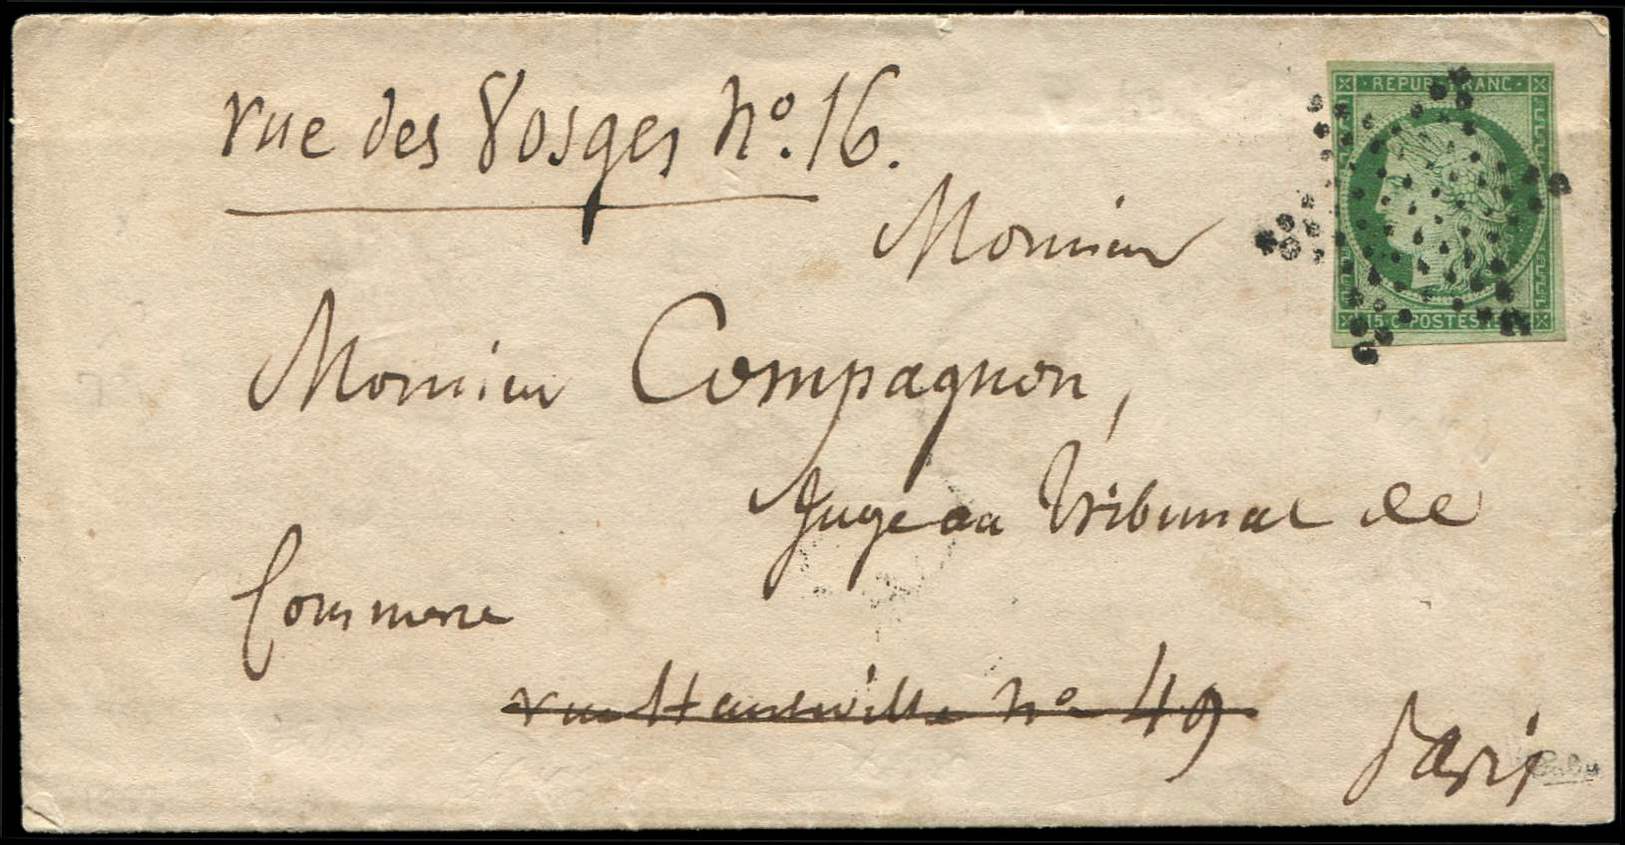 rue des Vosges no. 16.
REPUB FRANC
Monsieur
Monsieur Compagnon,
15 c. POSTES
Juge au Tribunal de
Commerce
rue Hauteville no 49
Paris